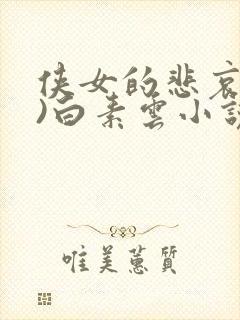 侠女的悲哀
)白素雲小説
唯美蕙質